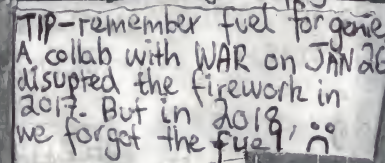 TIP-remember fuel for genie
A collab with WAR on JAN 26
disupted the firework in
2017. But in 2018,
we forgot the fuel